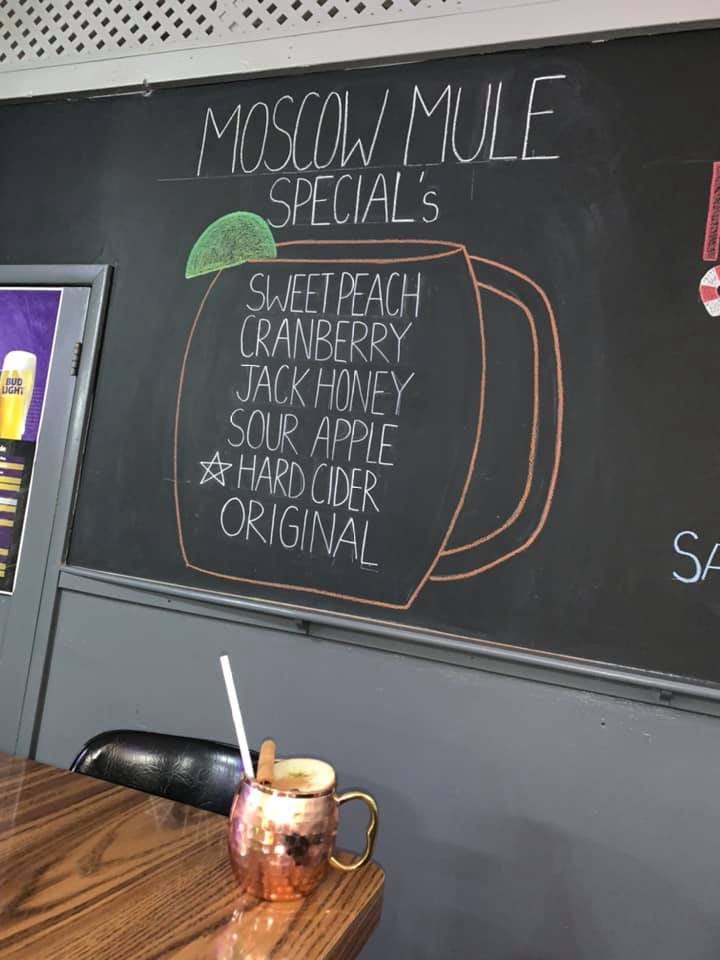 MOSCOW MULE
SPECIAL's
SWEET PEACH
CRANBERRY
JACK HONEY
SOUR APPLE
☆ HARD CIDER
ORIGINAL
BUD
LIGHT
SA